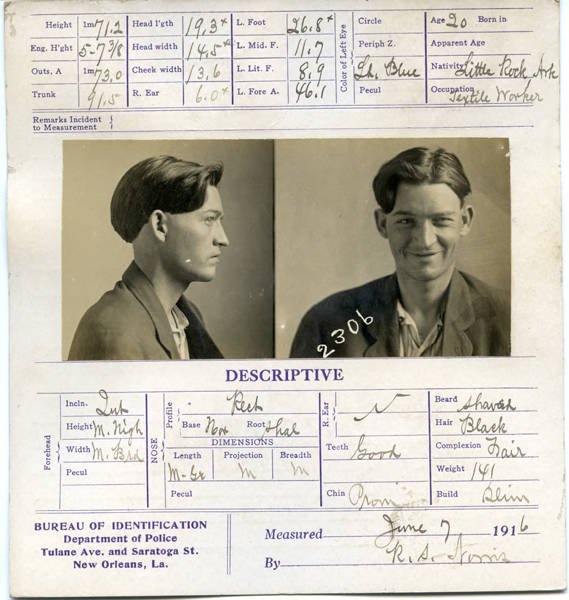 Height 1m 71.2 Head l'gth 19.3+ L. Foot 26.8+ Circle Age 20 Born in
Eng. H'ght 5-7 3/8 Head width 14.5+ L. Mid. F. 11.7 Periph Z. Apparent Age
Outs. A 1m 73.0 Cheek width 13.6 L. Lit. F. 8.9 Color of Left Eye Lt. Blue Nativity Little Rock Ark
Trunk 91.5 R. Ear 6.0+ L. Fore A. 46.1 Pecul Occupation Textile Worker
Remarks Incident
to Measurement
2306
DESCRIPTIVE
Forehead Incln. Int Profile Rect R. Ear Beard Shaved
Height M. High NOSE Base Hor Root Shal Hair Black
Width M. Brd DIMENSIONS Teeth Good Complexion Fair
Pecul Length Projection Breadth Weight 141
M-Gr M M Chin Prom Build Slim
Pecul
BUREAU OF IDENTIFICATION
Department of Police
Tulane Ave. and Saratoga St.
New Orleans, La.
Measured June 7 1916
By R. S. Norris